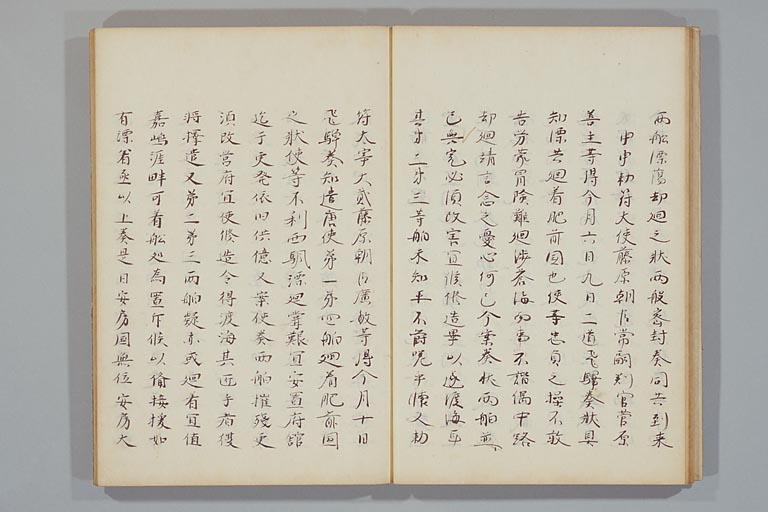 両舩漂蕩却廻之状両般密封奏同共到来
甲申勅符大使藤原朝臣常嗣判官菅原
善主等得今月六日九日二道飛驛奏状具
知漂共廻着肥前国也使等忠貞之操不敢
告労蒙冒険難廻渉蒼海而事不諧偶中路
却廻靖言念之憂心何已今案奏状両舶並
已無完必須改害宜候修造畢以遂渡海耳
其第二第三等舶未知平不欝呢于懐又勅
符大宰大貳藤原朝臣廣敏等得今月十日
飛驛奏知遣唐使第一第四舶廻着肥前国
之状使等不利西颿漂廻掌艱宜安置府舘
迄于更発依旧供億又案使奏両舶摧残更
須改営府宜便修造令得渡海其匠手者復
将択遣又第二第三両舶疑亦或廻有宜値
嘉嶋涯畔可着舩処為置斥候以備接援如
有漂着亟以上奏是日安房国無位安房大